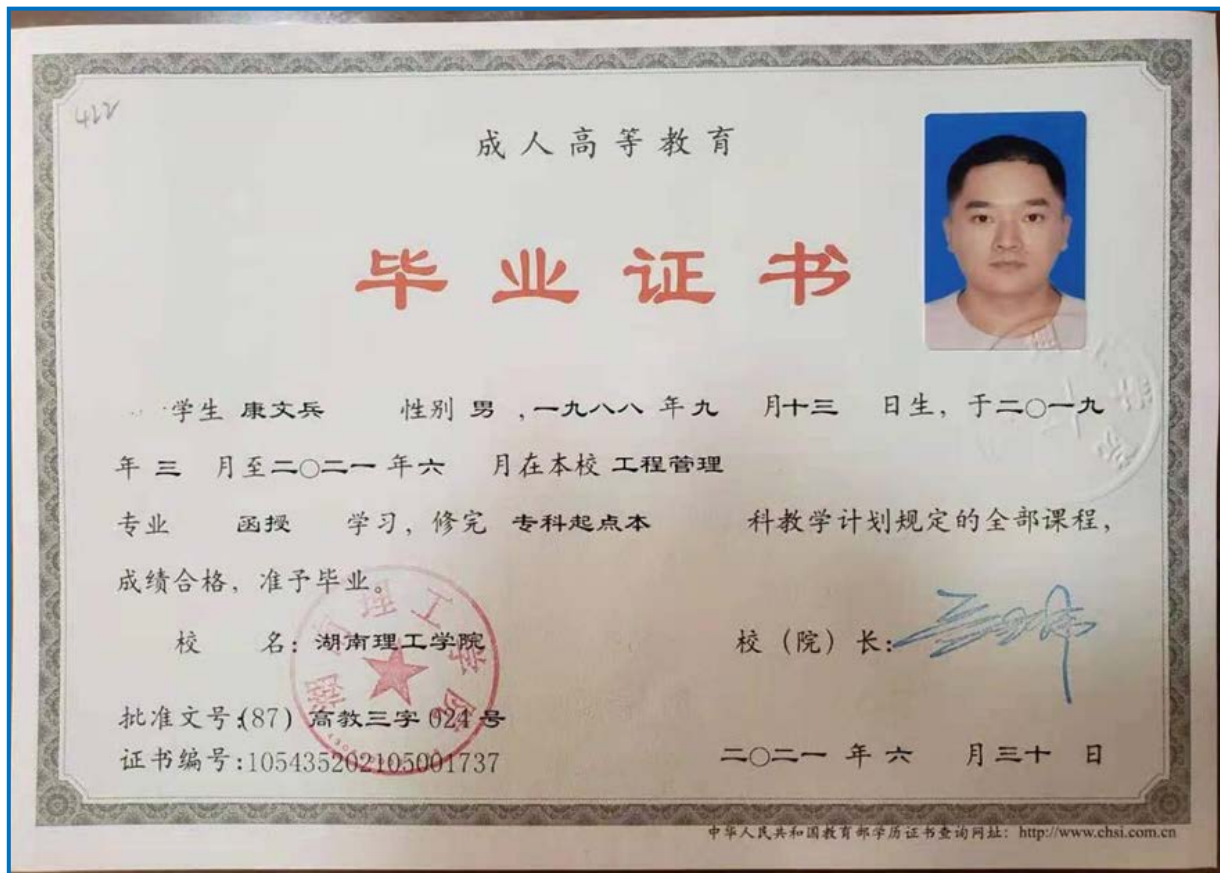 422
成人高等教育
毕业证书
学生 康文兵 性别 男 ,一九八八 年 九 月十三 日生, 于二〇一九
年 三 月至二〇二一 年 六 月在本校 工程管理
专业 函授 学习, 修完 专科起点本 科教学计划规定的全部课程,
成绩合格, 准予毕业。
校 名: 湖南理工学院 校(院)长:
批准文号:(87) 高教三字 024 号
证书编号:105435202105001737 二〇二一 年 六 月三十 日
湖南理工学院
中华人民共和国教育部学历证书查询网址: http://www.chsi.com.cn